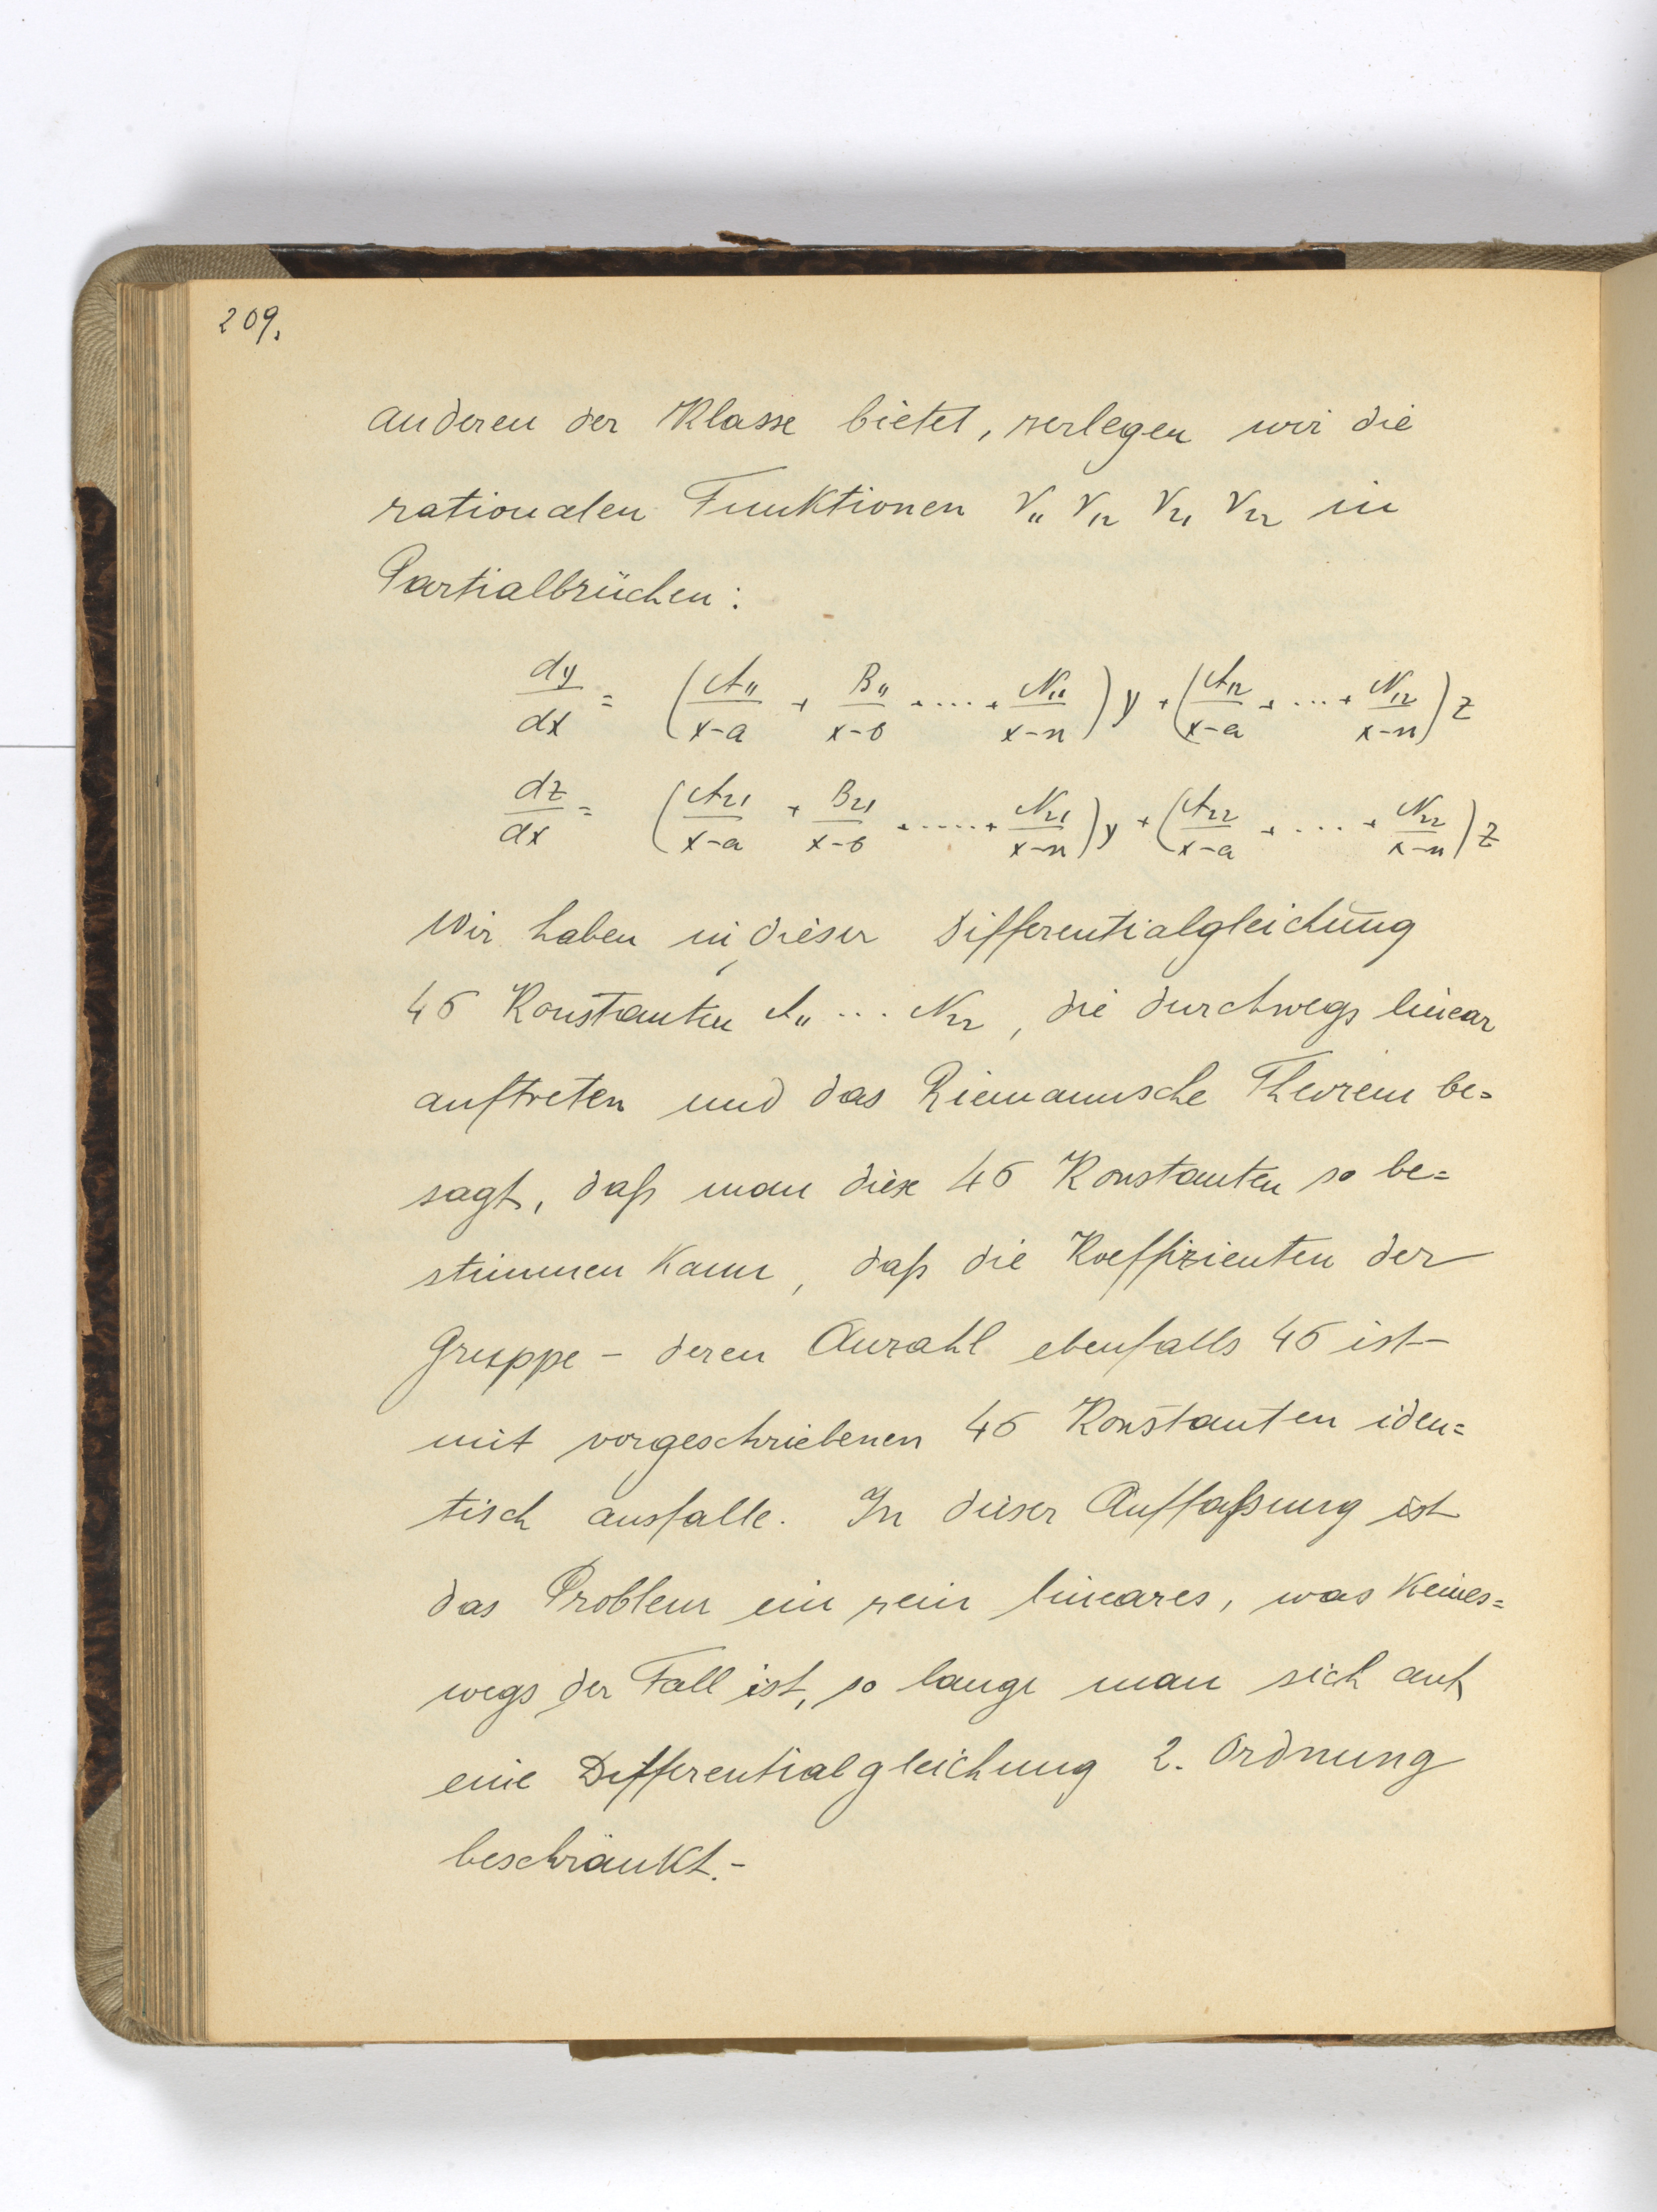 209.
anderen der Klasse bietet, zerlegen wir die
rationalen Funktionen r₁₁ r₁₂ r₂₁ r₂₂ in
Partialbrüchen:
dy/dx = (A₁₁/(x-a) + B₁₁/(x-b) + .... + N₁₁/(x-n)) y + (A₁₂/(x-a) + ... + N₁₂/(x-n)) z
dz/dx = (A₂₁/(x-a) + B₂₁/(x-b) + ..... + N₂₁/(x-n)) y + (A₂₂/(x-a) + .... + N₂₂/(x-n)) z
Wir haben in dieser Differentialgleichung
4σ Konstanten A₁₁ ... N₂₂, die durchwegs linear
auftreten und das Riemannsche Theorem be=
sagt, daß man diese 4σ Konstanten so be=
stimmen kann, daß die Koeffizienten der
Gruppe – deren Anzahl ebenfalls 4σ ist –
mit vorgeschriebenen 4σ Konstanten iden=
tisch ausfalle. In dieser Auffaßung ist
das Problem ein rein lineares, was keines=
wegs der Fall ist, so lange man sich auf
eine Differentialgleichung 2. Ordnung
beschränkt.-